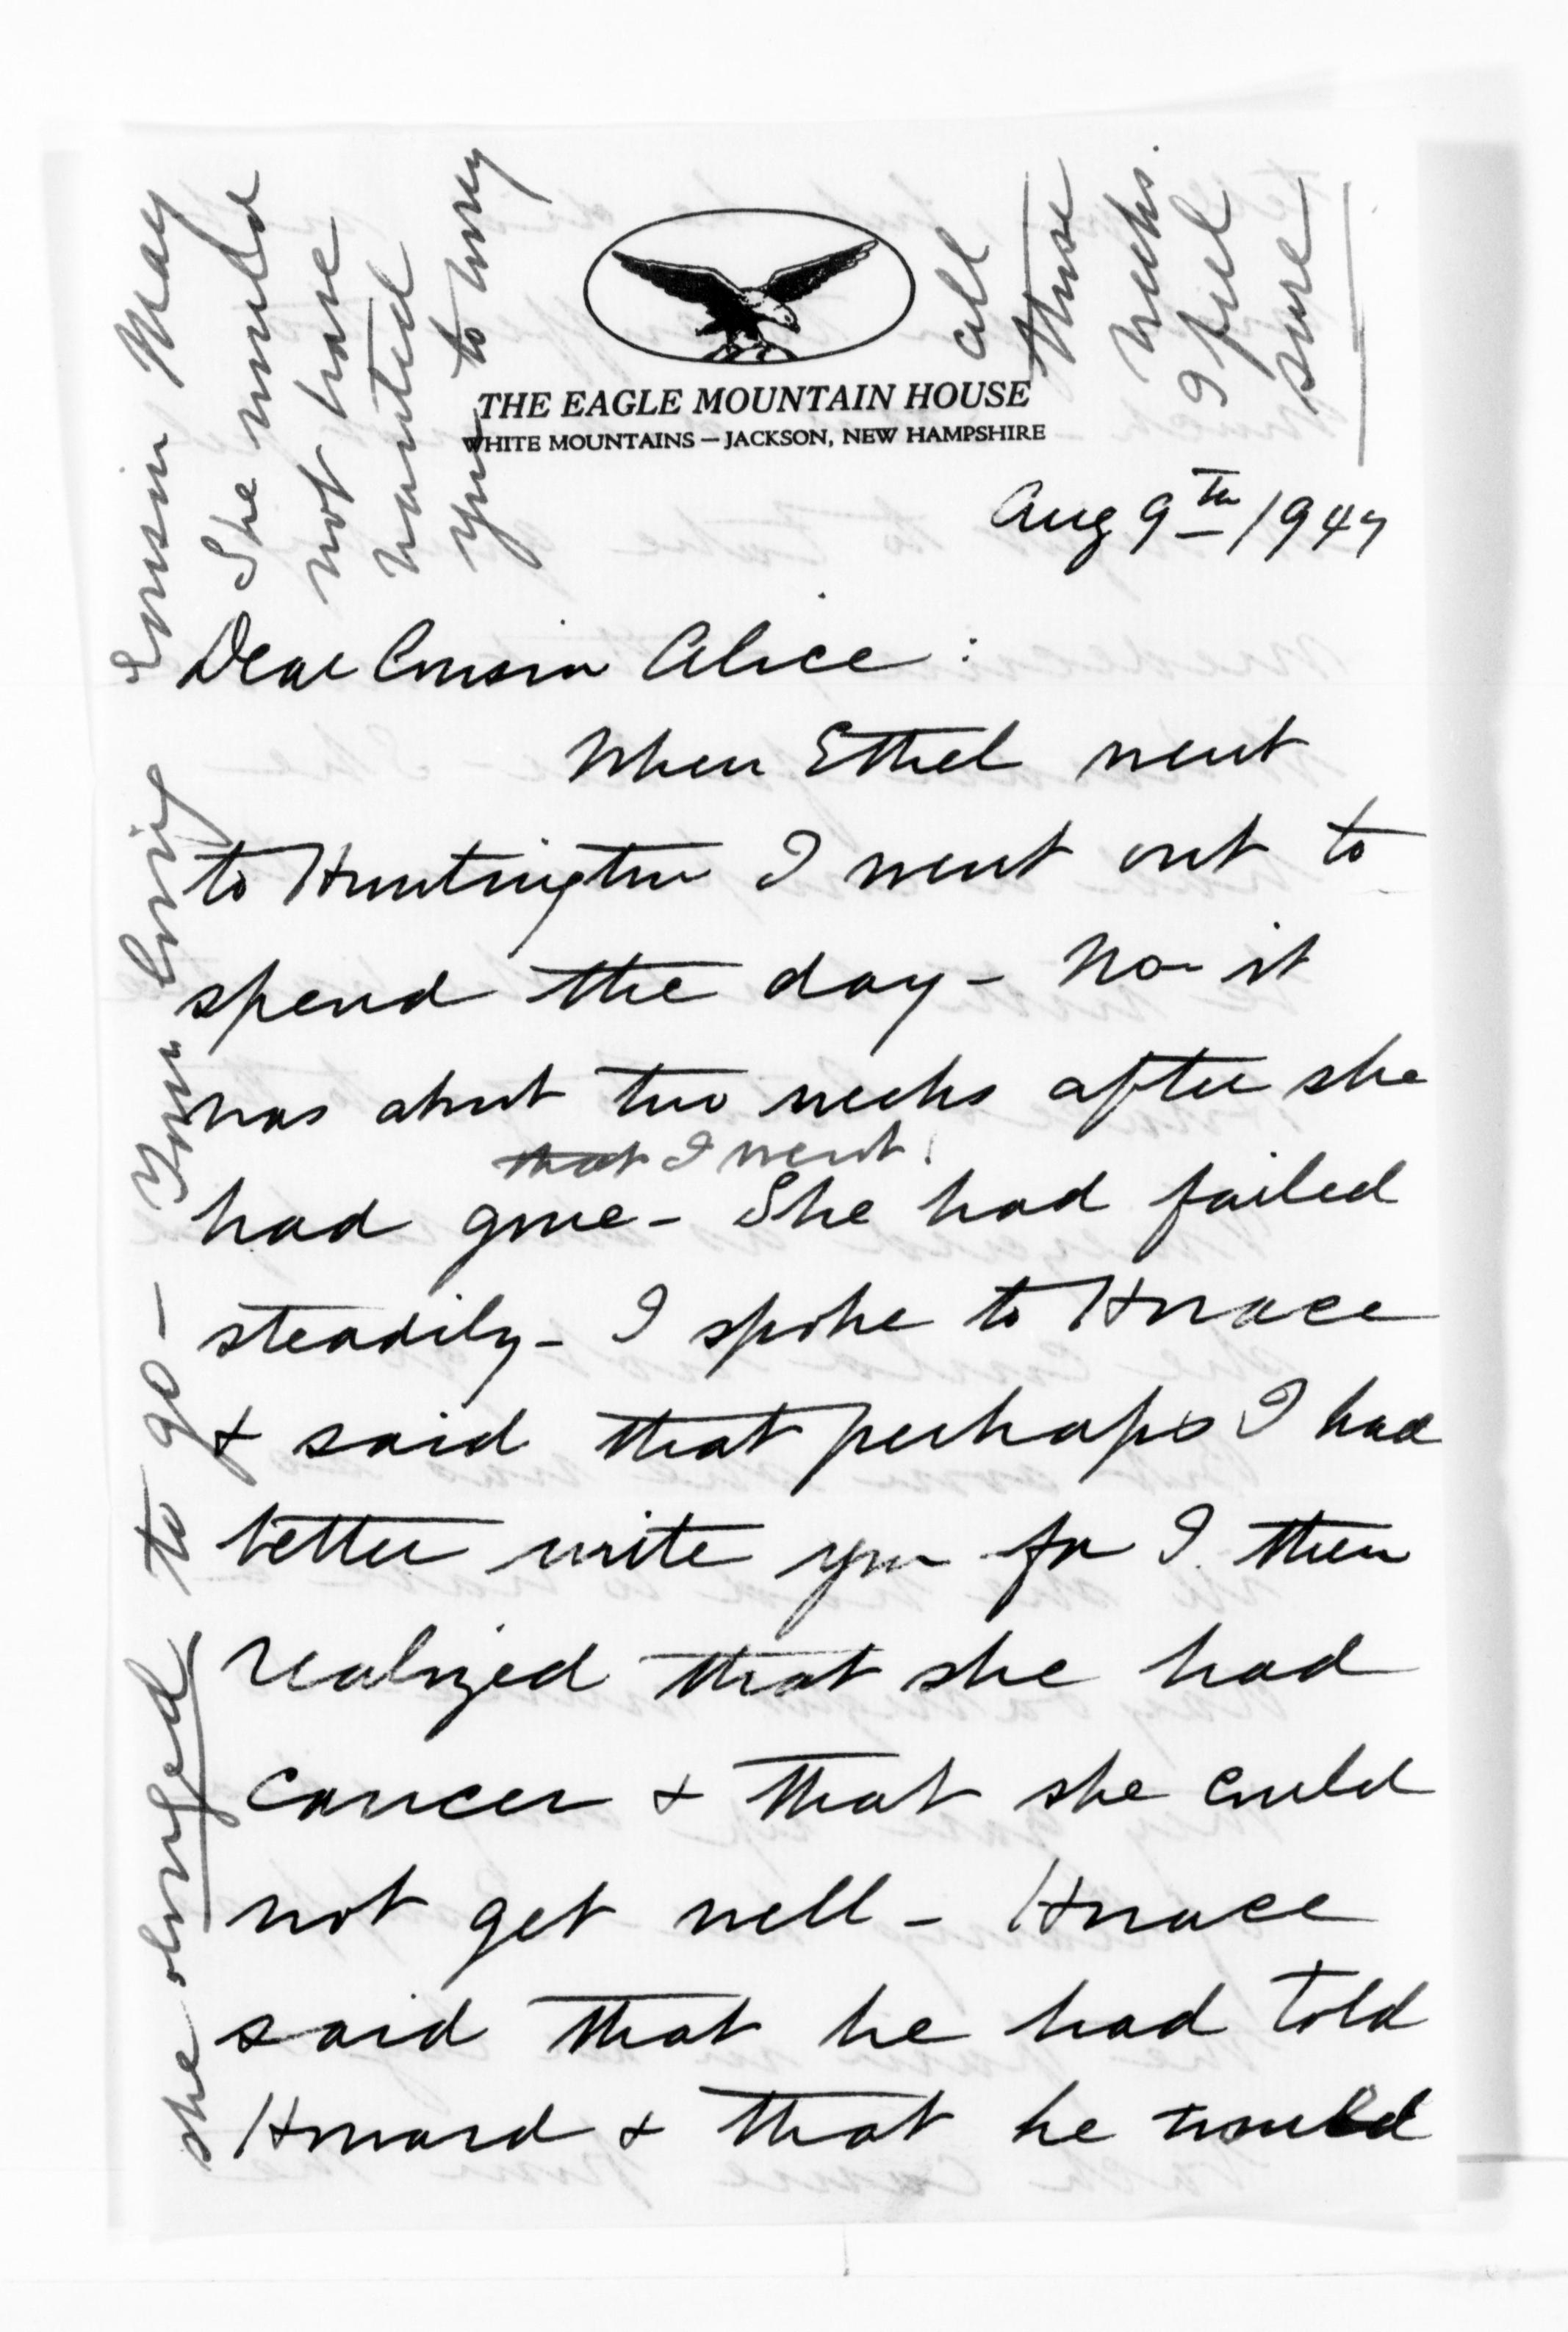 THE EAGLE MOUNTAIN HOUSE
WHITE MOUNTAINS — JACKSON, NEW HAMPSHIRE
Aug 9th / 1947
Dear Cousin Alice :
When Ethel went
to Huntington I went out to
spend the day - No it
was about two weeks after she
that I went
had gone - She had failed
steadily - I spoke to Horace
& said that perhaps I had
better write you for I then
realized that she had
cancer & that she could
not get well - Horace
said that he had told
Howard & that he would
She would
not have
wanted
you to worry
all
these
weeks
I feel
sure
she longed to go - Your loving
Cousin May